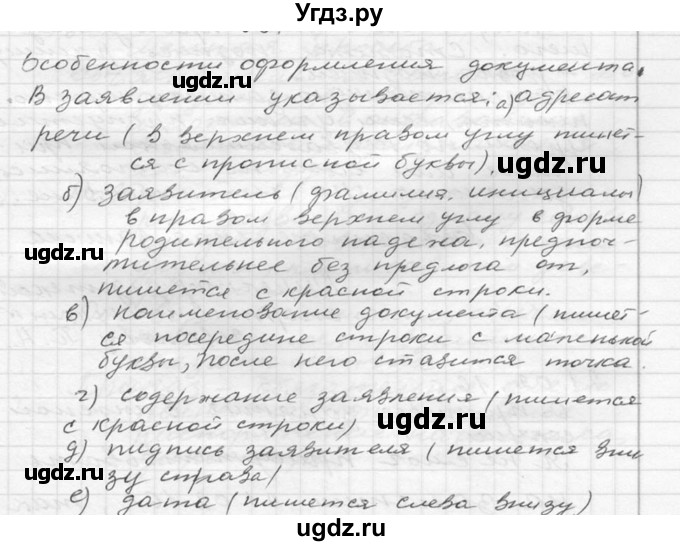 Угдз.ру
Особенности оформления документа.
В заявлении указывается: а) адресат
речи (в верхнем правом углу пишет-
ся с прописной буквы),
б) заявитель (фамилия, инициалы)
в правом верхнем углу в форме
родительного падежа, предпоч-
тительнее без предлога от,
пишется с красной строки.
в) наименование документа (пишет-
ся посередине строки с маленькой
буквы, после него ставится точка.
г) содержание заявления (пишется
с красной строки)
д) пидпись заявителя (пишется вни
зу справа)
е) дата (пишется слева внизу)
ugdz.ru
ugdz.ru
ugdz.ru
ugdz.ru
ugdz.ru
ugdz.ru
ugdz.ru
ugdz.ru
ugdz.ru